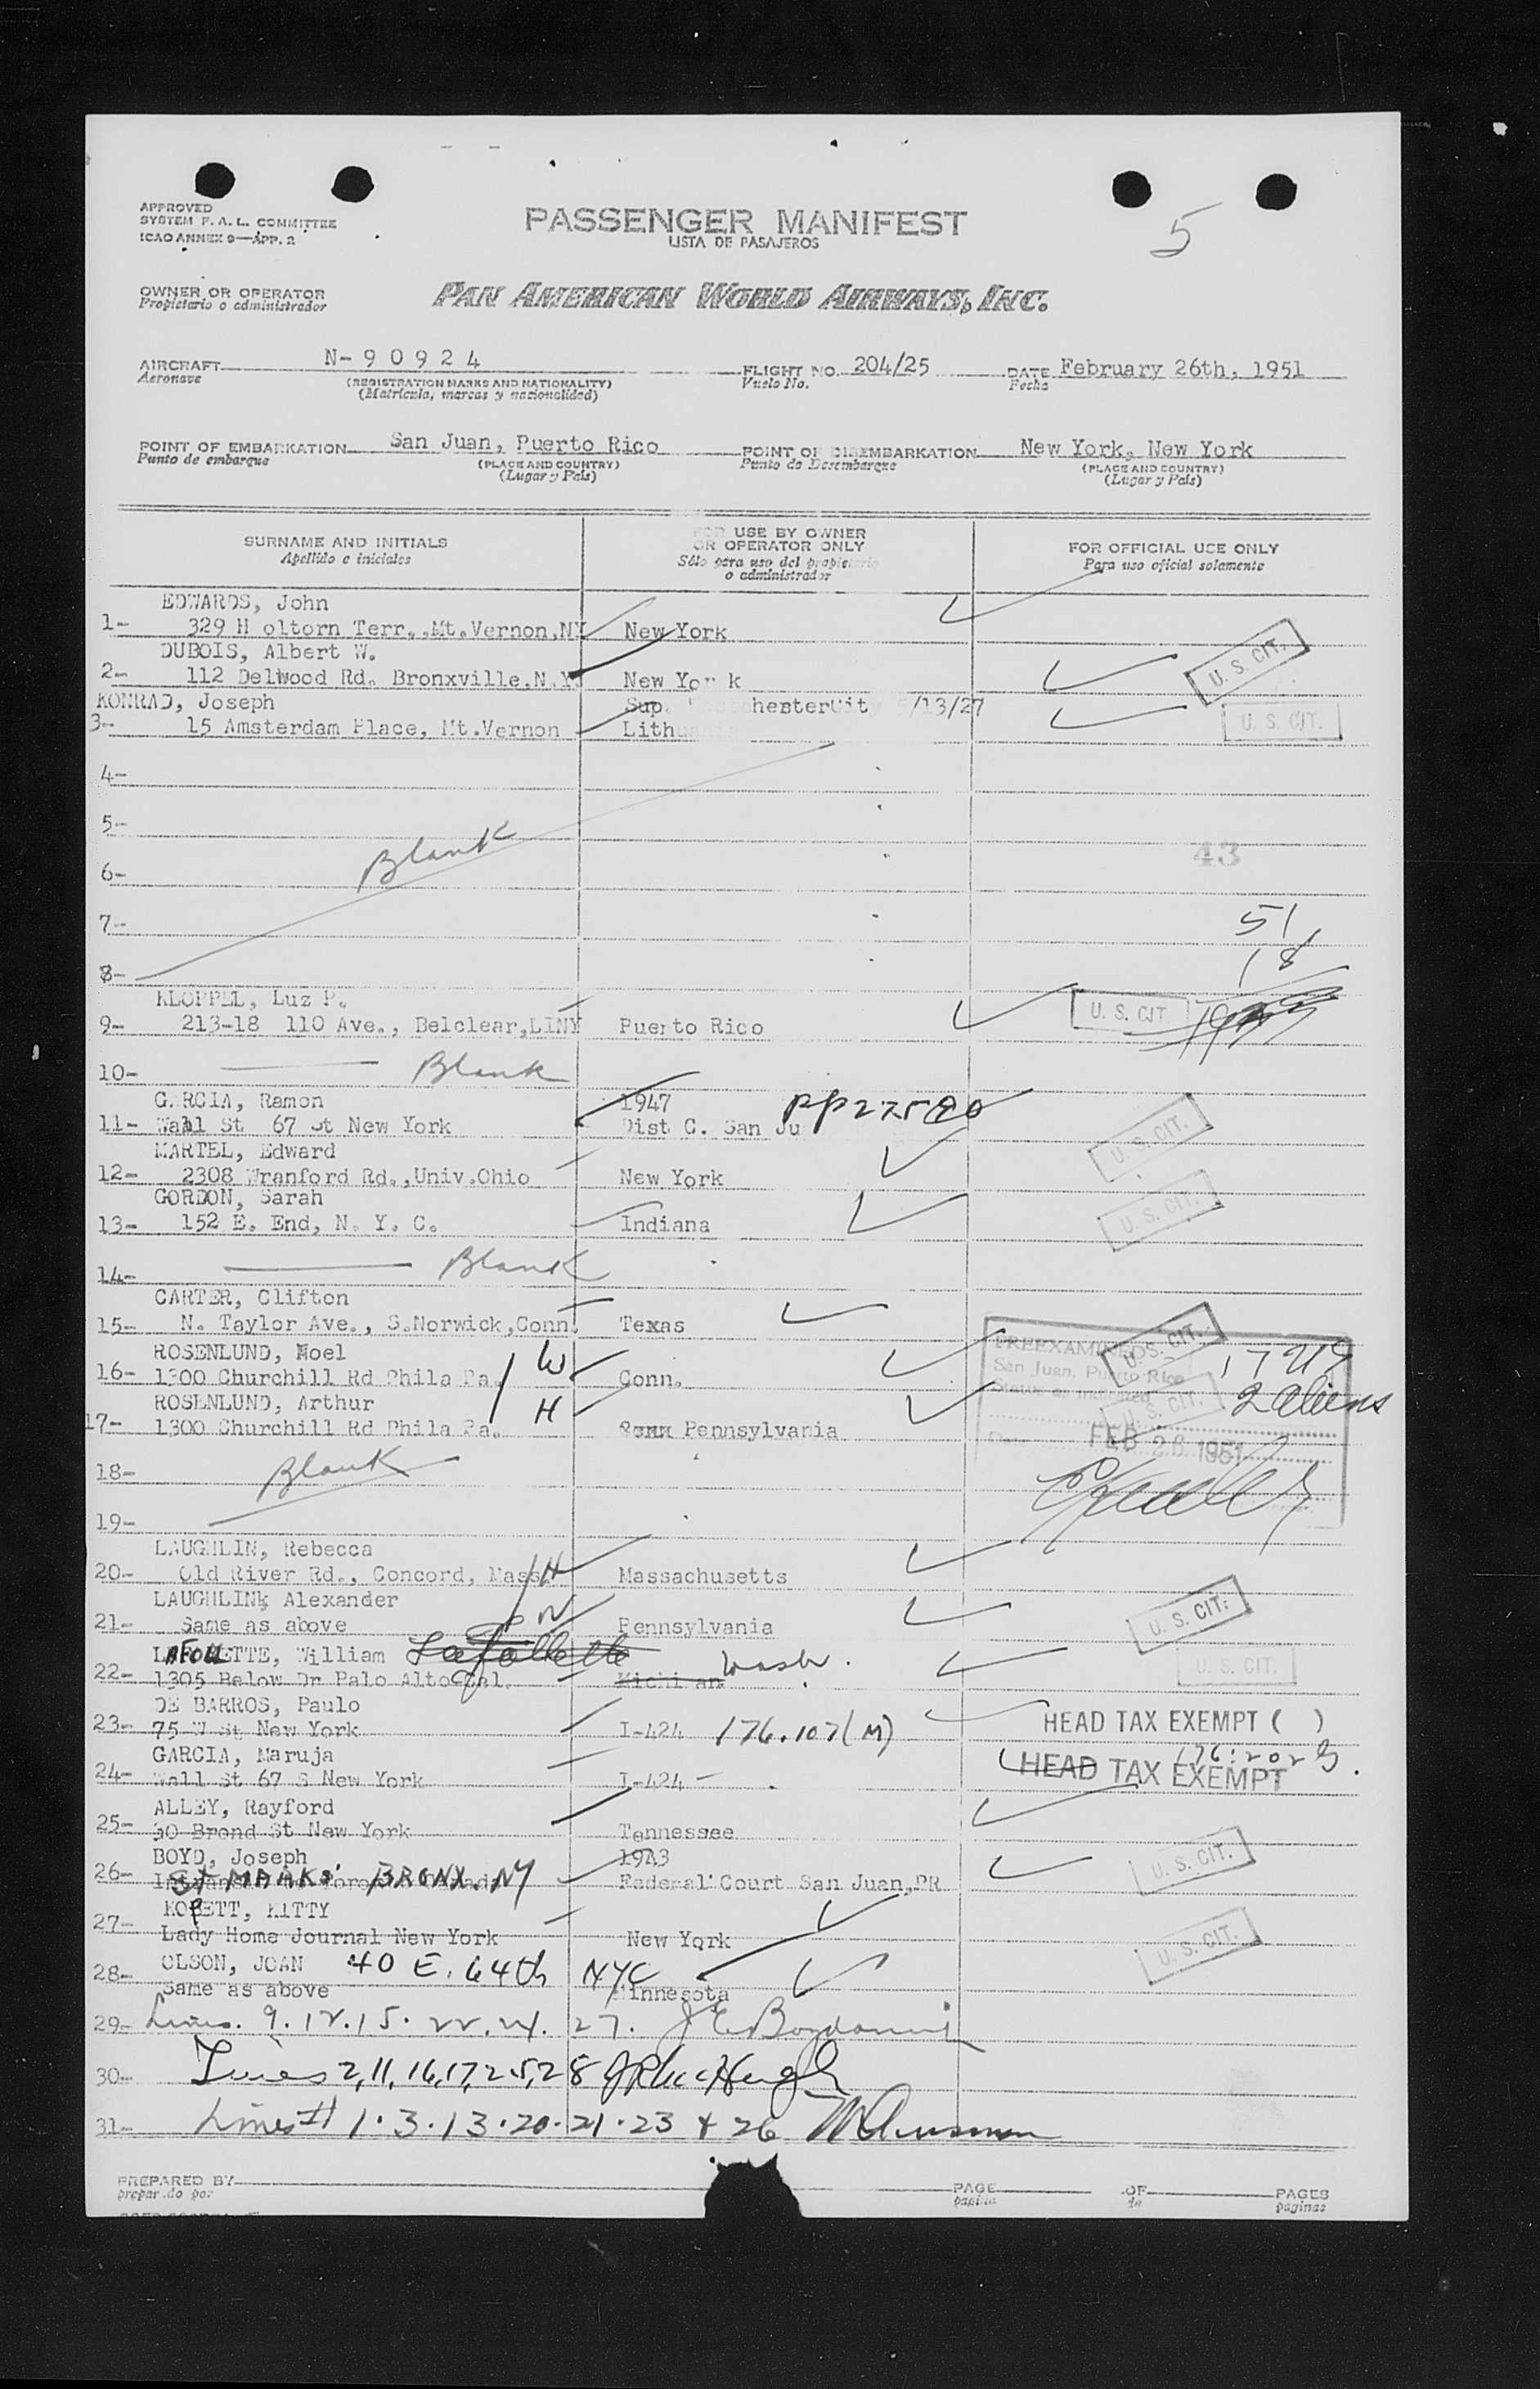 5
APPROVED
SYSTEM F. A. L. COMMITTEE
ICAO ANNEX 9—APP. 2
PASSENGER MANIFEST
LISTA DE PASAJEROS
OWNER OR OPERATOR
Propietario o administrador
PAN AMERICAN WORLD AIRWAYS, INC.
AIRCRAFT N-90924 FLIGHT NO. 204/25 DATE February 26th, 1951
Aeronave (REGISTRATION MARKS AND NATIONALITY) Vuelo No. Fecha
(Matricula, marcas y nacionalidad)
POINT OF EMBARKATION San Juan, Puerto Rico POINT OF DISEMBARKATION New York, New York
Punto de embarque (PLACE AND COUNTRY) Punto de Desembarque (PLACE AND COUNTRY)
(Lugar y Pais) (Lugar y Pais)
SURNAME AND INITIALS FOR USE BY OWNER OR OPERATOR ONLY FOR OFFICIAL USE ONLY
Apellido e iniciales Sólo para uso del propietario o administrador Para uso oficial solamente
EDWARDS, John
1- 329 H oltorn Terr.,Mt.Vernon,NY New York
DUBOIS, Albert W.
2- 112 Dellwood Rd. Bronxville,N.Y. New Yo k U. S. CIT.
KONRAD, Joseph Sup. chester /13/27
3- 15 Amsterdam Place, Mt.Vernon Lith U. S. CIT.
4-
5-
6- Blank 43
7- 51
8- 18
KLOPPEL, Luz P.
9- 213-18 110 Ave., Belclear,LINY Puerto Rico U. S. CIT
10- Blank
GARCIA, Ramon 1947
11- Wall St 67 St New York Dist C. San Ju U. S. CIT.
MARTEL, Edward
12- 2308 Wranford Rd.,Univ.Ohio New York
GORDON, Sarah
13- 152 E. End, N. Y. C. Indiana U. S. CIT.
14- Blank
CARTER, Clifton
15- N. Taylor Ave., S.Norwick,Conn. Texas
ROSENLUND, Noel PREEXAMINED U. S. CIT.
16- 1300 Churchill Rd Phila Pa. W Conn. San Juan, Puerto Rico 17 US
ROSENLUND, Arthur Status as indicated U. S. CIT. 2 aliens
17- 1300 Churchill Rd Phila Pa. H Pennsylvania Date FEB 26 1951
18- Blank
19-
LAUGHLIN, Rebecca
20- Old River Rd., Concord, Mass. H Massachusetts
LAUGHLIN, Alexander
21- Same as above W Pennsylvania U. S. CIT.
LAFOLLETTE, William Lafollette
22- 1305 Below Dr Palo Alto Cal. Michi an Wash. U. S. CIT.
DE BARROS, Paulo
23- 75 W St New York I-424 176.107(M) HEAD TAX EXEMPT ( )
GARCIA, Maruja 176.202
24- Wall St 67 S New York I-424 HEAD TAX EXEMPT
ALLEY, Rayford
25- 30 Brond St New York Tennessee
BOYD, Joseph 1943
26- St MARKS BRONX, NY Federal Court San Juan,PR U. S. CIT.
KOPETT, KITTY
27- Lady Home Journal New York New York
OLSON, JOAN 40 E. 64th NYC U. S. CIT.
28- Same as above Minnesota
29- Lines. 9. 12. 15. 22. 24. 27.
30- Lines 2, 11, 16, 17, 25, 28
31- Lines # 1. 3. 13. 20. 21. 23 + 26
PREPARED BY PAGE OF PAGES
preparado por pagina de paginas